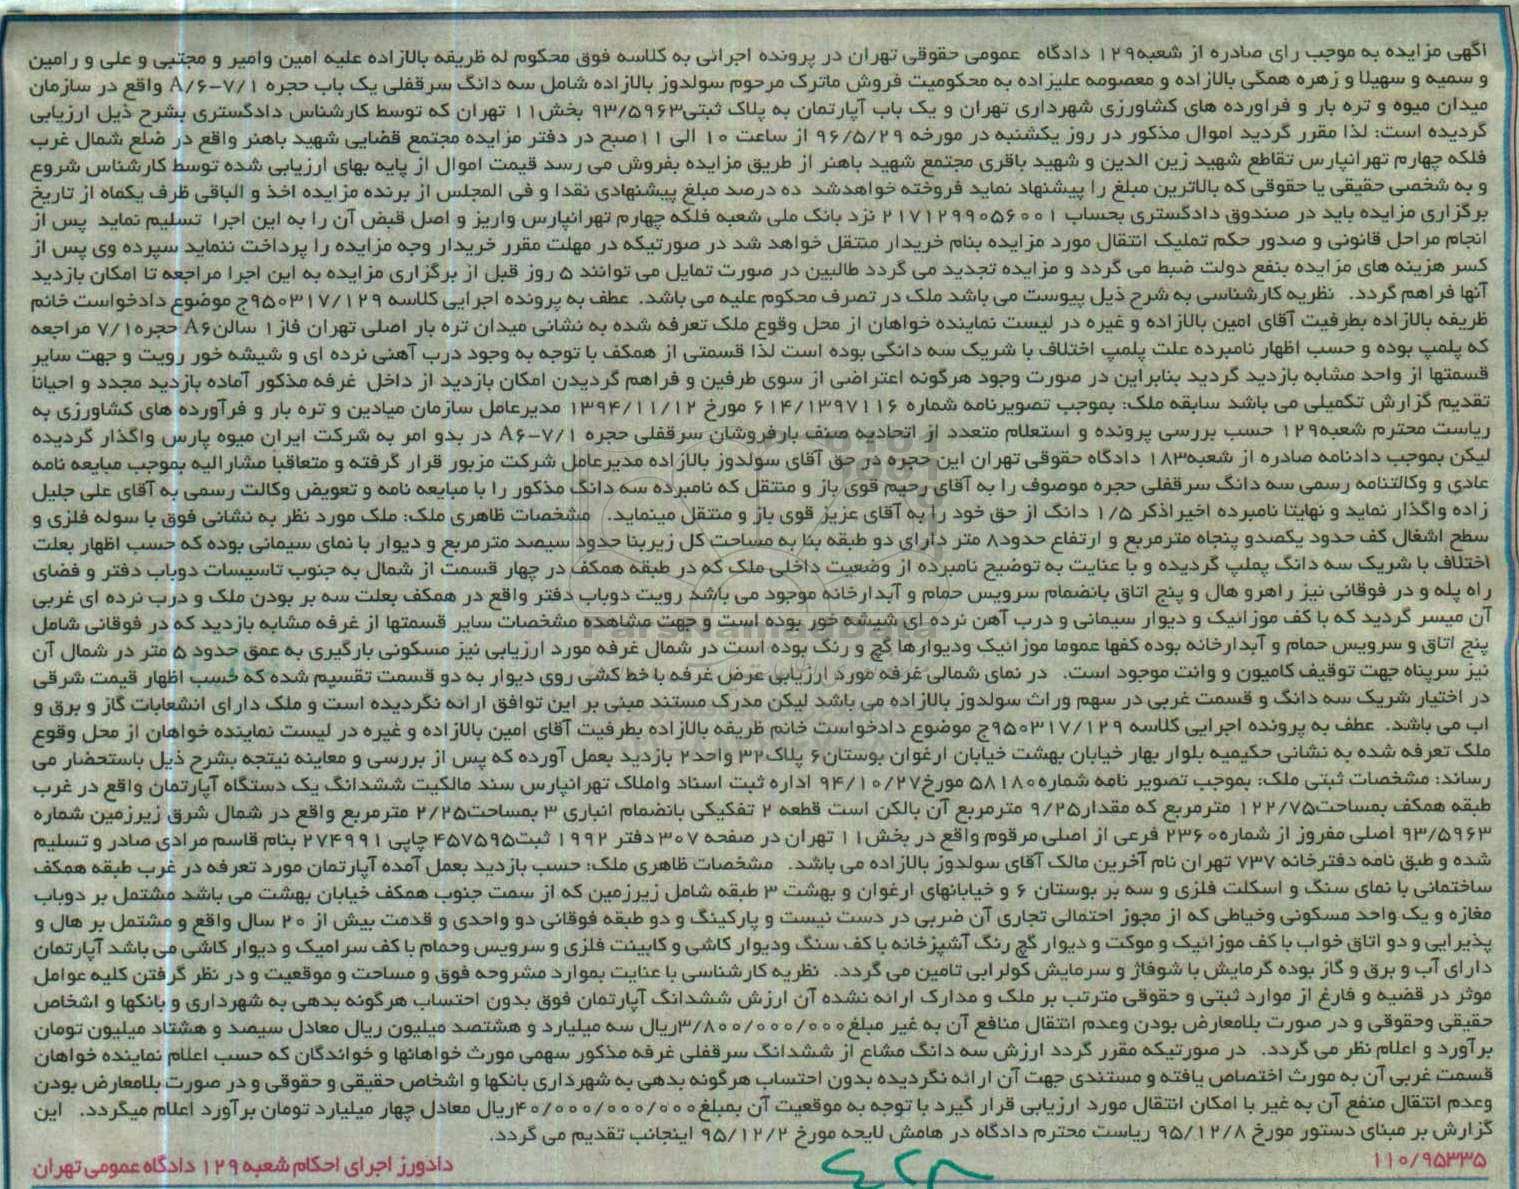 آگهی مزایده به موجب رای صادره از شعبه۱۲۹ دادگاه عمومی حقوقی تهران در پرونده اجرائی به کلاسه فوق محکوم له ظریفه بالازاده علیه امین وامیر و مجتبی و علی و رامین
و سمیه و سهیلا و زهره همگی بالازاده و معصومه علیزاده به محکومیت فروش ماترک مرحوم سولدوز بالازاده شامل سه دانگ سرقفلی یک باب حجره ۷/۱-A/۶ واقع در سازمان
میدان میوه و تره بار و فراورده های کشاورزی شهرداری تهران و یک باب آپارتمان به پلاک ثبتی۹۳/۵۹۶۳ بخش۱۱ تهران که توسط کارشناس دادگستری بشرح ذیل ارزیابی
گردیده است: لذا مقرر گردید اموال مذکور در روز یکشنبه در مورخه ۹۶/۵/۲۹ از ساعت ۱۰ الی ۱۱صبح در دفتر مزایده مجتمع قضایی شهید باهنر واقع در ضلع شمال غرب
فلکه چهارم تهرانپارس تقاطع شهید زین الدین و شهید باقری مجتمع شهید باهنر از طریق مزایده بفروش می رسد قیمت اموال از پایه بهای ارزیابی شده توسط کارشناس شروع
و به شخصی حقیقی یا حقوقی که بالاترین مبلغ را پیشنهاد نماید فروخته خواهدشد ده درصد مبلغ پیشنهادی نقدا و فی المجلس از برنده مزایده اخذ و الباقی ظرف یکماه از تاریخ
برگزاری مزایده باید در صندوق دادگستری بحساب ۲۱۷۱۲۹۹۰۵۶۰۰۱ نزد بانک ملی شعبه فلکه چهارم تهرانپارس واریز و اصل قبض آن را به این اجرا تسلیم نماید پس از
انجام مراحل قانونی و صدور حکم تملیک انتقال مورد مزایده بنام خریدار منتقل خواهد شد در صورتیکه در مهلت مقرر خریدار وجه مزایده را پرداخت ننماید سپرده وی پس از
کسر هزینه های مزایده بنفع دولت ضبط می گردد و مزایده تجدید می گردد طالبین در صورت تمایل می توانند ۵ روز قبل از برگزاری مزایده به این اجرا مراجعه تا امکان بازدید
آنها فراهم گردد. نظریه کارشناسی به شرح ذیل پیوست می باشد ملک در تصرف محکوم علیه می باشد. عطف به پرونده اجرایی کلاسه ۹۵۰۳۱۷/۱۲۹ج موضوع دادخواست خانم
ظریفه بالازاده بطرفیت آقای امین بالازاده و غیره در لیست نماینده خواهان از محل وقوع ملک تعرفه شده به نشانی میدان تره بار اصلی تهران فاز۱ سالنA۶ حجره۷/۱ مراجعه
که پلمپ بوده و حسب اظهار نامبرده علت پلمپ اختلاف با شریک سه دانگی بوده است لذا قسمتی از همکف با توجه به وجود درب آهنی نرده ای و شیشه خور رویت و جهت سایر
قسمتها از واحد مشابه بازدید گردید بنابراین در صورت وجود هرگونه اعتراضی از سوی طرفین و فراهم گردیدن امکان بازدید از داخل غرفه مذکور آماده بازدید مجدد و احیانا
تقدیم گزارش تکمیلی می باشد سابقه ملک: بموجب تصویرنامه شماره ۶۱۴/۱۳۹۷۱۱۶ مورخ ۱۳۹۴/۱۱/۱۲ مدیرعامل سازمان میادین و تره بار و فرآورده های کشاورزی به
ریاست محترم شعبه۱۲۹ حسب بررسی پرونده و استعلام متعدد از اتحادیه صنف بارفروشان سرقفلی حجره ۷/۱-A۶ در بدو امر به شرکت ایران میوه پارس واگذار گردیده
لیکن بموجب دادنامه صادره از شعبه۱۸۳ دادگاه حقوقی تهران این حجره در حق آقای سولدوز بالازاده مدیرعامل شرکت مزبور قرار گرفته و متعاقبا مشارالیه بموجب مبایعه نامه
عادی و وکالتنامه رسمی سه دانگ سرقفلی حجره موصوف را به آقای رحیم قوی باز و منتقل که نامبرده سه دانگ مذکور را با مبایعه نامه و تعویض وکالت رسمی به آقای علی جلیل
زاده واگذار نماید و نهایتا نامبرده اخیراذکر ۱/۵ دانگ از حق خود را به آقای عزیز قوی باز و منتقل مینماید. مشخصات ظاهری ملک: ملک مورد نظر به نشانی فوق با سوله فلزی و
سطح اشغال کف حدود یکصدو پنجاه مترمربع و ارتفاع حدود۸ متر دارای دو طبقه بنا به مساحت کل زیربنا حدود سیصد مترمربع و دیوار با نمای سیمانی بوده که حسب اظهار بعلت
اختلاف با شریک سه دانگ پملپ گردیده و با عنایت به توضیح نامبرده از وضعیت داخلی ملک که در طبقه همکف در چهار قسمت از شمال به جنوب تاسیسات دوباب دفتر و فضای
راه پله و در فوقانی نیز راهرو هال و پنج اتاق بانضمام سرویس حمام و آبدارخانه موجود می باشد رویت دوباب دفتر واقع در همکف بعلت سه بر بودن ملک و درب نرده ای غربی
آن میسر گردید که با کف موزائیک و دیوار سیمانی و درب آهن نرده ای شیشه خور بوده است و جهت مشاهده مشخصات سایر قسمتها از غرفه مشابه بازدید که در فوقانی شامل
پنج اتاق و سرویس حمام و آبدارخانه بوده کفها عموما موزائیک ودیوارها گچ و رنگ بوده است در شمال غرفه مورد ارزیابی نیز مسکونی بارگیری به عمق حدود ۵ متر در شمال آن
نیز سرپناه جهت توقیف کامیون و وانت موجود است. در نمای شمالی غرفه مورد ارزیابی عرض غرفه با خط کشی روی دیوار به دو قسمت تقسیم شده که حسب اظهار قیمت شرقی
در اختیار شریک سه دانگ و قسمت غربی در سهم وراث سولدوز بالازاده می باشد لیکن مدرک مستند مبنی بر این توافق ارائه نگردیده است و ملک دارای انشعابات گاز و برق و
اب می باشد. عطف به پرونده اجرایی کلاسه ۹۵۰۳۱۷/۱۲۹ج موضوع دادخواست خانم ظریفه بالازاده بطرفیت آقای امین بالازاده و غیره در لیست نماینده خواهان از محل وقوع
ملک تعرفه شده به نشانی حکیمیه بلوار بهار خیابان بهشت خیابان ارغوان بوستان۶ پلاک۳۲ واحد۲ بازدید بعمل آورده که پس از بررسی و معاینه نیتجه بشرح ذیل باستحضار می
رساند: مشخصات ثبتی ملک: بموجب تصویر نامه شماره۵۸۱۸۰ مورخ۹۴/۱۰/۲۷ اداره ثبت اسناد واملاک تهرانپارس سند مالکیت ششدانگ یک دستگاه آپارتمان واقع در غرب
طبقه همکف بمساحت۱۲۲/۷۵ مترمربع که مقدار۹/۲۵ مترمربع آن بالکن است قطعه ۲ تفکیکی بانضمام انباری ۳ بمساحت۲/۲۵ مترمربع واقع در شمال شرق زیرزمین شماره
۹۳/۵۹۶۳ اصلی مفروز از شماره۲۳۶۰ فرعی از اصلی مرقوم واقع در بخش۱۱ تهران در صفحه ۳۰۷ دفتر ۱۹۹۲ ثبت۴۵۷۵۹۵ چاپی ۲۷۴۹۹۱ بنام قاسم مرادی صادر و تسلیم
شده و طبق نامه دفترخانه ۷۳۷ تهران نام آخرین مالک آقای سولدوز بالازاده می باشد. مشخصات ظاهری ملک: حسب بازدید بعمل آمده آپارتمان مورد تعرفه در غرب طبقه همکف
ساختمانی با نمای سنگ و اسکلت فلزی و سه بر بوستان ۶ و خیابانهای ارغوان و بهشت ۳ طبقه شامل زیرزمین که از سمت جنوب همکف خیابان بهشت می باشد مشتمل بر دوباب
مغازه و یک واحد مسکونی وخیاطی که از مجوز احتمالی تجاری آن ضربی در دست نیست و پارکینگ و دو طبقه فوقانی دو واحدی و قدمت بیش از ۲۰ سال واقع و مشتمل بر هال و
پذیرایی و دو اتاق خواب با کف موزائیک و موکت و دیوار گچ رنگ آشپزخانه با کف سنگ ودیوار کاشی و کابینت فلزی و سرویس وحمام با کف سرامیک و دیوار کاشی می باشد آپارتمان
دارای آب و برق و گاز بوده گرمایش با شوفاژ و سرمایش کولرابی تامین می گردد. نظریه کارشناسی با عنایت بموارد مشروحه فوق و مساحت و موقعیت و در نظر گرفتن کلیه عوامل
موثر در قضیه و فارغ از موارد ثبتی و حقوقی مترتب بر ملک و مدارک ارائه نشده آن ارزش ششدانگ آپارتمان فوق بدون احتساب هرگونه بدهی به شهرداری و بانکها و اشخاص
حقیقی وحقوقی و در صورت بلامعارض بودن وعدم انتقال منافع آن به غیر مبلغ۳/۸۰۰/۰۰۰/۰۰۰ریال سه میلیارد و هشتصد میلیون ریال معادل سیصد و هشتاد میلیون تومان
برآورد و اعلام نظر می گردد. در صورتیکه مقرر گردد ارزش سه دانگ مشاع از ششدانگ سرقفلی غرفه مذکور سهمی مورث خواهانها و خواندگان که حسب اعلام نماینده خواهان
قسمت غربی آن به مورث اختصاص یافته و مستندی جهت آن ارائه نگردیده بدون احتساب هرگونه بدهی به شهرداری بانکها و اشخاص حقیقی و حقوقی و در صورت بلامعارض بودن
وعدم انتقال منفع آن به غیر با امکان انتقال مورد ارزیابی قرار گیرد با توجه به موقعیت آن بمبلغ۴۰/۰۰۰/۰۰۰/۰۰۰ریال معادل چهار میلیارد تومان برآورد اعلام میگردد. این
گزارش بر مبنای دستور مورخ ۹۵/۱۲/۸ ریاست محترم دادگاه در هامش لایحه مورخ ۹۵/۱۲/۲ اینجانب تقدیم می گردد.
۱۱۰/۹۵۳۳۵ دادورز اجرای احکام شعبه ۱۲۹ دادگاه عمومی تهران
ParsNamadData